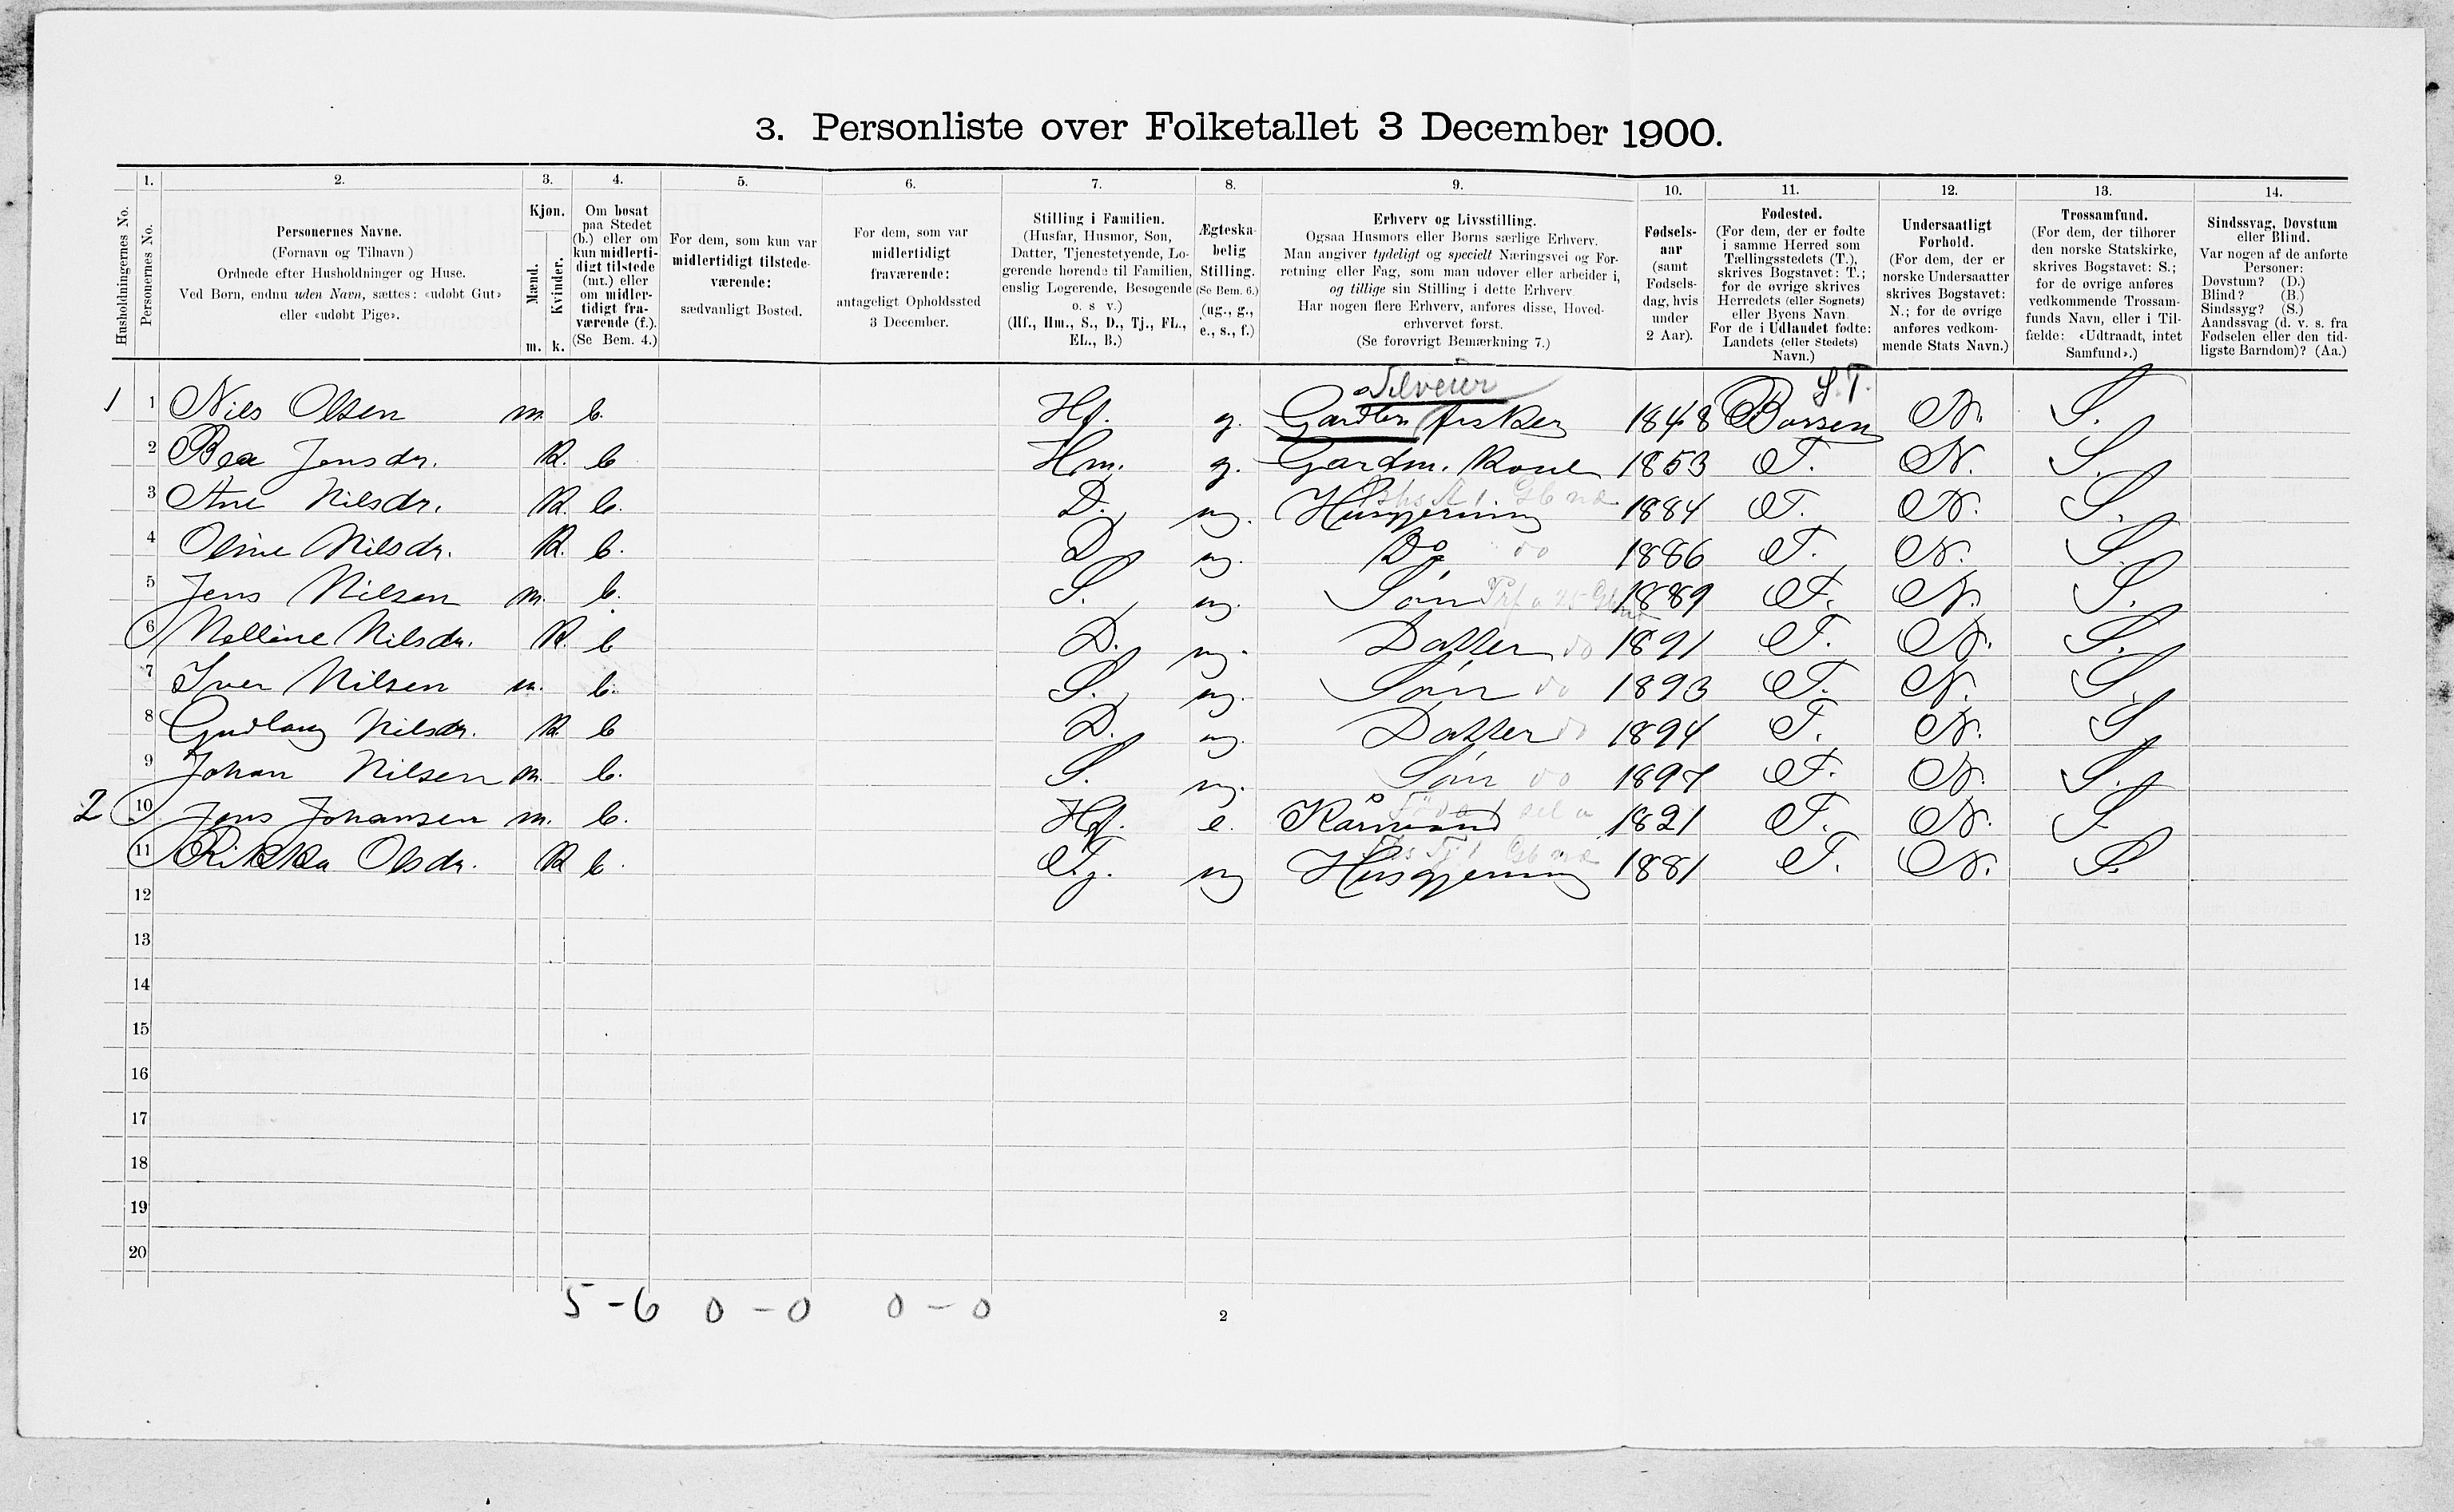 3. Personliste over Folketallet 3 December 1900.
1. 2. 3. 4. 5. 6. 7. 8. 9. 10. 11. 12. 13. 14.
Husholdningernes No.
Personernes No.
Personernes Navne.
(Fornavn og Tilnavn)
Ordnede efter Husholdninger og Huse.
Ved Børn, endnu uden Navn, sættes: «udøbt Gut»
eller «udøbt Pige».
Kjøn.
Mænd.
Kvinder.
m. k.
Om bosat
paa Stedet
(b.) eller om
kun midlerti-
digt tilstede
(mt.) eller
om midler-
tidigt fra-
værende (f.).
(Se Bem. 4.)
For dem, som kun var
midlertidigt tilstede-
værende:
sædvanligt Bosted.
For dem, som var
midlertidigt
fraværende:
antageligt Opholdssted
3 December.
Stilling i Familien.
(Husfar, Husmor, Søn,
Datter, Tjenestetyende, Lo-
gerende hørende til Familien,
enslig Logerende, Besøgende
o. s v.)
(Hf., Hm., S., D., Tj., FL.,
EL., B.)
Ægteska-
belig
Stilling.
(Se Bem. 6.)
(ug., g.,
e., s., f.)
Erhverv og Livsstilling.
Ogsaa Husmors eller Børns særlige Erhverv.
Man angiver tydeligt og specielt Næringsvei og For-
retning eller Fag, som man udøver eller arbeider i,
og tillige sin Stilling i dette Erhverv
Har nogen flere Erhverv, anføres disse, Hoved-
erhvervet først.
(Se forøvrigt Bemærkning 7.)
Fødsels-
aar
(samt
Fødsels-
dag, hvis
under
2 Aar).
Fødested.
(For dem, der er fødte
i samme Herred som
Tællingsstedets (T.),
skrives Bogstavet: T.;
for de øvrige skrives
Herredets (eller Sognets)
eller Byens Navn.
For de i Udlandet fødte:
Landets (eller Stedets)
Navn.)
Undersaatligt
Forhold.
(For dem, der er
norske Undersaatter
skrives Bogstavet:
N.; for de øvrige
anføres vedkom-
mende Stats Navn.)
Trossamfund.
(For dem, der tilhører
den norske Statskirke,
skrives Bogstavet: S.;
for de øvrige anføres
vedkommende Trossam-
funds Navn, eller i Til-
fælde: «Udtraadt, intet
Samfund».)
Sindssvag, Døvstum
eller Blind.
Var nogen af de anførte
Personer:
Døvstum? (D.)
Blind? (B.)
Sindssyg? (S.)
Aandssvag (d. v. s. fra
Fødselen eller den tid-
ligste Barndom)? (Aa.)
Selveier S.T.
1 1 Nils Olsen m. b. Hf. g. fisker 1848 Børsen N. S.
2 Bea Jensdr. k. b Hm. g. Gardm. Kone 1853 T. N. S.
3 Ane Nilsdr. k. b. D. ug. Husgjerning 1884 T. N. S.
4 Oline Nilsdr. k. b. D ug. Do do 1886 T. N. S.
5 Jens Nilsen m. b. S. ug. Søn 1889 T. N. S.
6 Nilsdr. k. b D. ug. Datter do 1891 T. N. S.
7 Iver Nilsen m. b. S. ug. Søn do 1893 T. N. S.
8 Gudlaug Nilsdr. k b D. ug. Datter do 1894 T. N. S
9 Johan Nilsen m. b. S. ug. Søn do 1897 T. N. S.
2 10 Jens Johansen m. b. Hf. e. Kårmand 1821 T. N. S
11 Rikka Olsdr. k b. Tj. ug Husgjerning 1881 T. N. S.
12
13
14
15
16
17
18
19
20
5 - 6 0 - 0 0 - 0
2